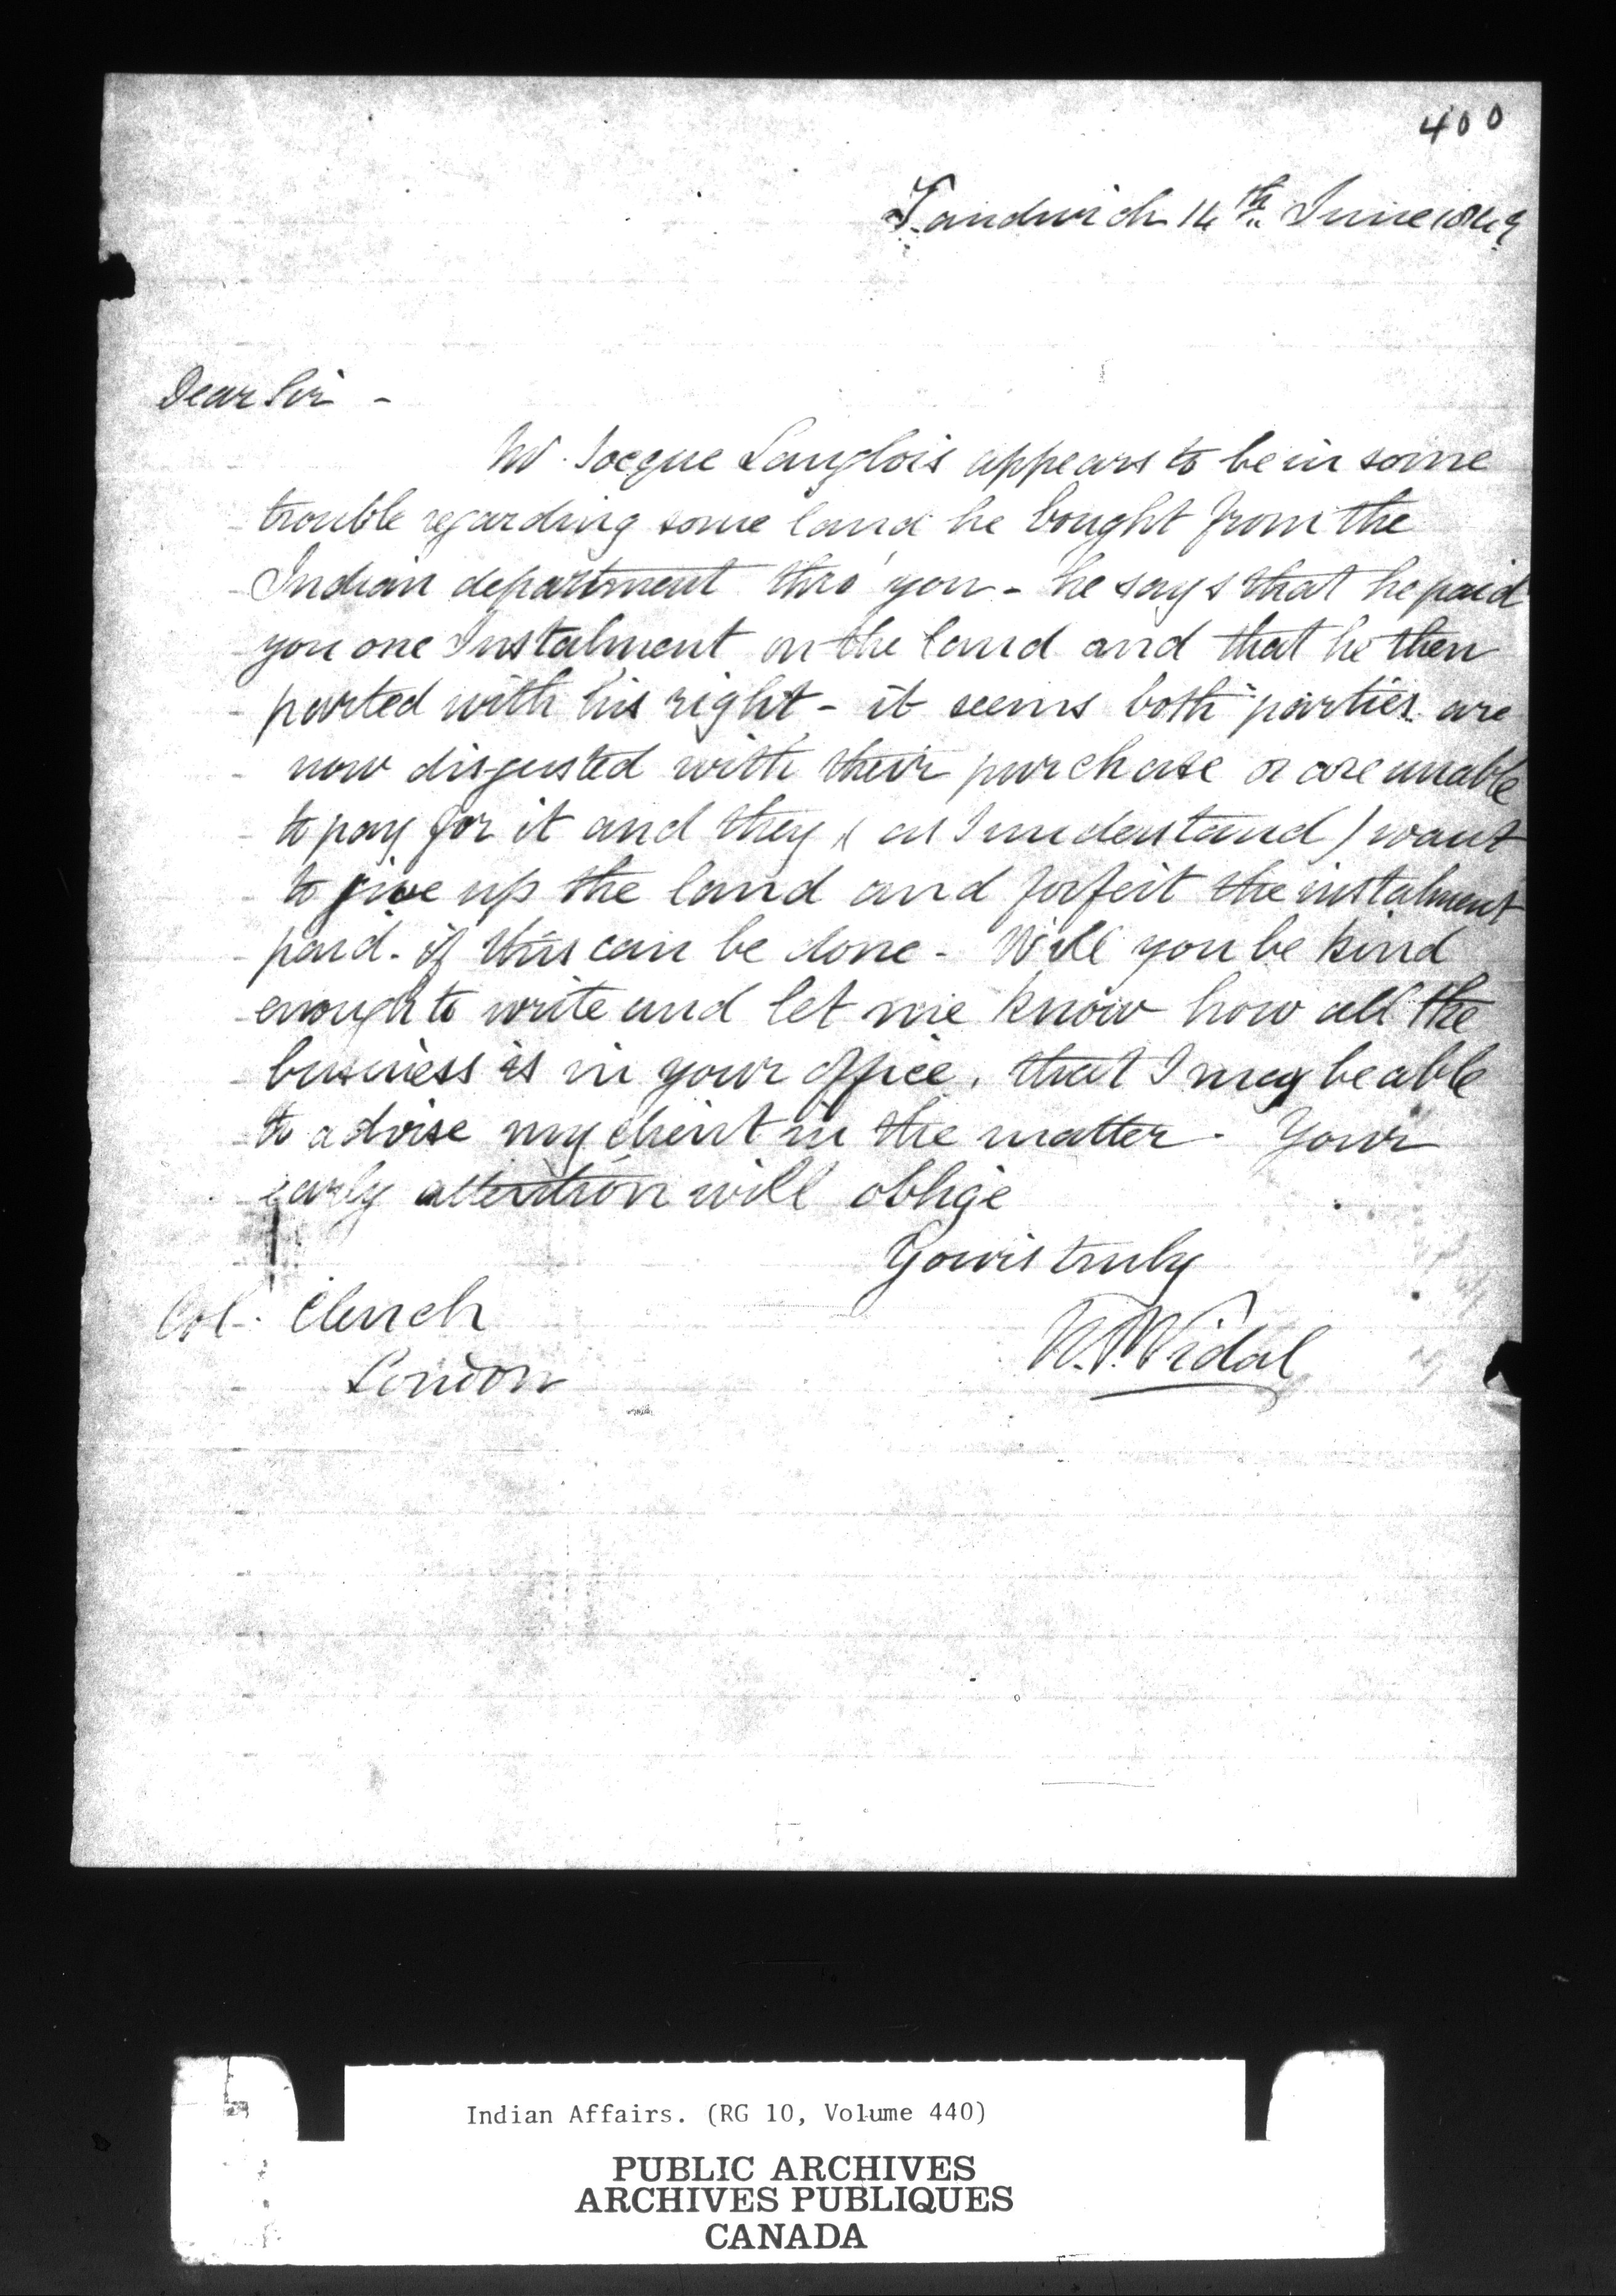 400
Sandwich 14th June 1849
Dear Sir -
Mr. Jacque Langlois appears to be in some
trouble regarding some land he bought from the
Indian department thro' you - he says that he paid
you one Instalment on the land and that he then
parted with his right - it seems both parties are
now disgusted with their purchase or are unable
to pay for it and they ( as I understand ) want
to give up the land and forfeit the instalment
paid. if this can be done - Will you be kind
enough to write and let me know how all the
business is in your office, that I may be able
to advise my client in the matter. Your
early attention will oblige
Yours truly
Col. Clench
Vidal
London
Indian Affairs. (RG 10, Volume 440)
PUBLIC ARCHIVES
ARCHIVES PUBLIQUES
CANADA